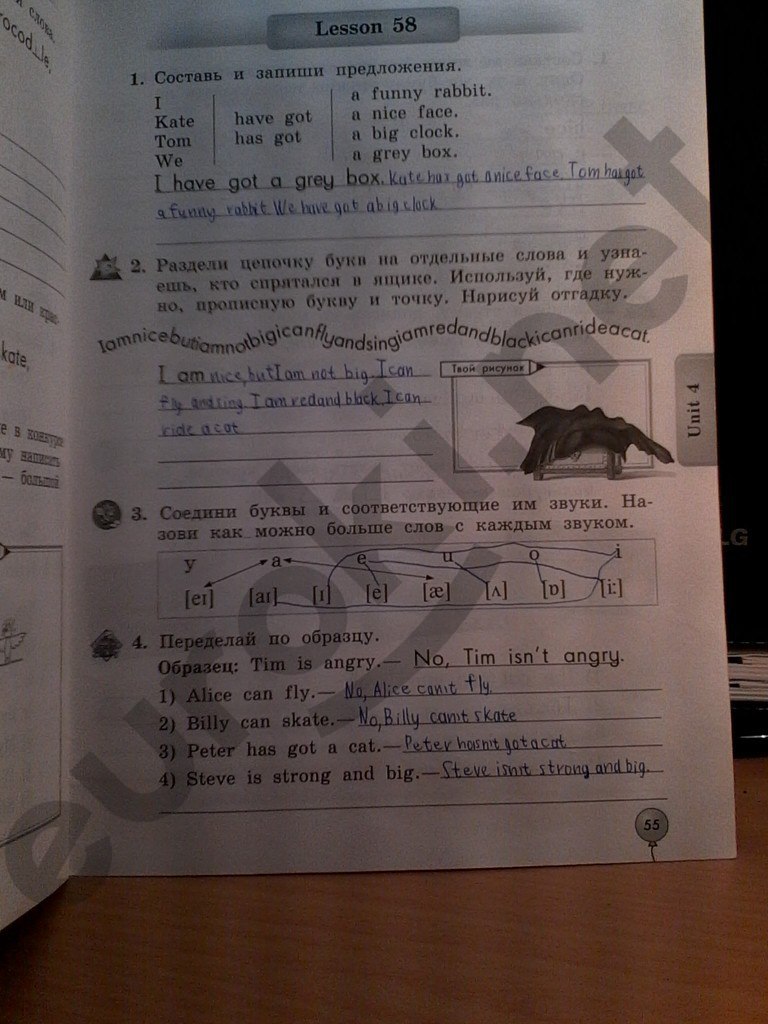 слова.
ocod_le,
м или крас-
kate,
е в конкурсе
му написать
— большой
Lesson 58
1. Составь и запиши предложения.
I
Kate
Tom
We
have got
has got
a funny rabbit.
a nice face.
a big clock.
a grey box.
I have got a grey box. Kate has got a nice face. Tom has got
a funny rabbit. We have got a big clock
2. Раздели цепочку букв на отдельные слова и узна-
ешь, кто спрятался в ящике. Используй, где нуж-
но, прописную букву и точку. Нарисуй отгадку.
Iamnicebutiamnotbigicanflyandsingiamredandblackicanrideacat.
I am nice, but I am not big. I can
fly and sing. I am red and black. I can
ride a cat
Твой рисунок
Unit 4
3. Соедини буквы и соответствующие им звуки. На-
зови как можно больше слов с каждым звуком.
y a e u o i
[eɪ] [aɪ] [ɪ] [e] [æ] [ʌ] [ɒ] [i:]
4. Переделай по образцу.
Образец: Tim is angry.— No, Tim isn't angry.
1) Alice can fly.— No, Alice can't fly.
2) Billy can skate.— No, Billy can't skate
3) Peter has got a cat.— Peter hasn't got a cat
4) Steve is strong and big.— Steve isn't strong and big.
55
LG
euroki.net